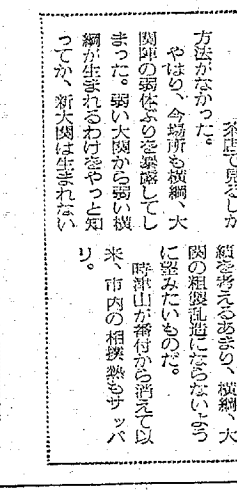 茶店で見るしか
方法がなかった。
やはり、今場所も横綱、大
関陣の弱体ぶりを暴露してし
まった。弱い大関から弱い横
綱が生まれるわけをやっと知
ってか、新大関は生まれない
績を考えるあまり、横綱、大
関の粗製乱造にならないよう
に望みたいものだ。
時津山が番付から消えて以
来、市内の相撲熱もサッパ
リ。